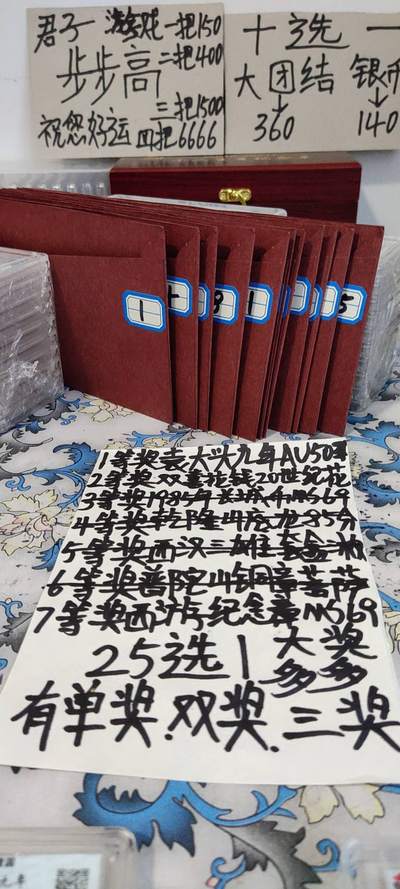 君子游戏一把150
步步高 二把400
三把1500
祝您好运 四把6666
十选一
大团结 银币
↓ ↓
360 140
1 8 1 5
1等奖袁大头九年AU50
2等奖双
3等奖1985年长城币MS69
4等奖乾隆 85分
5等奖西汉三雄套盒
6等奖普陀山铜章菩萨
7等奖西湖纪念章MS69
25选1 大奖多多
有单奖.双奖.三奖